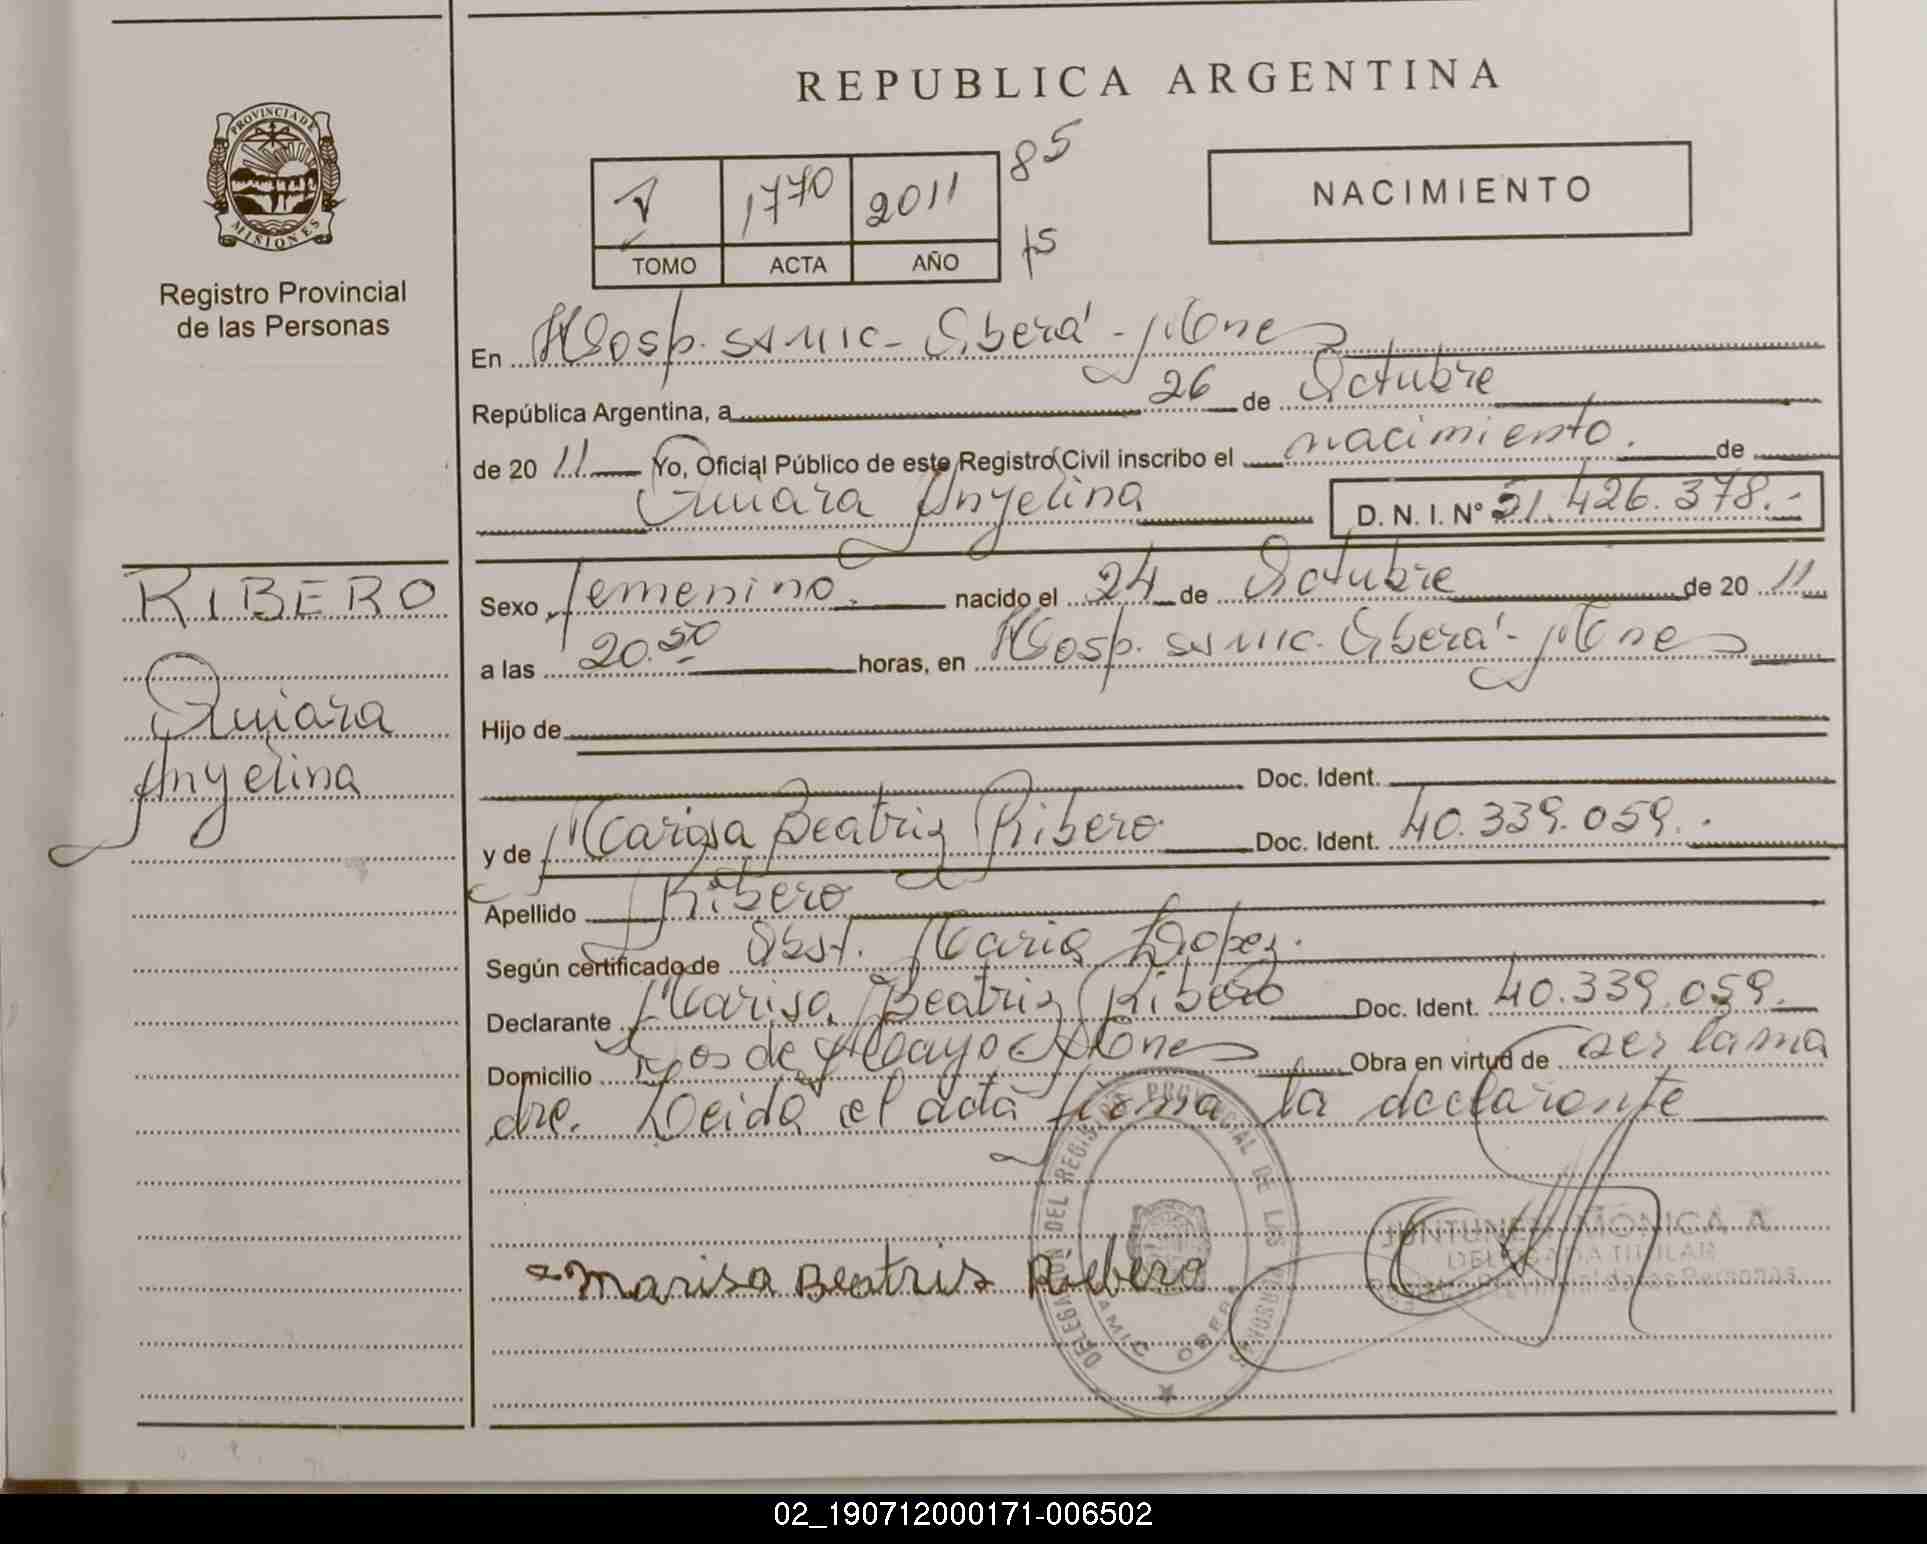 REPUBLICA ARGENTINA
PROVINCIA DE
MISIONES
Registro Provincial
de las Personas
1770 2011 85
TOMO ACTA AÑO 15
NACIMIENTO
En Hosp. SAMIC - Oberá - Mones
República Argentina, a 26 de Octubre
de 20 11 Yo, Oficial Público de este Registro Civil inscribo el nacimiento. de
Anyelina D. N. I. N° 51.426.378.-
RIBERO
Anyelina
Sexo femenino. nacido el 24 de Octubre de 20 11
a las 20.50 horas, en Hosp. SAMIC. Oberá - Mones
Hijo de
Doc. Ident.
y de Marisa Beatriz Ribero Doc. Ident. 40.339.059.-
Apellido Ribero
Según certificado de Obst. Maria Lopez.
Declarante Marisa Beatriz Ribero Doc. Ident. 40.339.059.
Domicilio os de Mayo - Mones Obra en virtud de ser la ma
dre. Leida el acta firma la declarante
DELEGACION DEL REGISTRO PROVINCIAL DE LAS PERSONAS
SAMIC OBERA
JUNTUNEN MONICA A
DELEGADA TITULAR
Registro Provincial de las Personas
Marisa Beatris Riebero
02_190712000171-006502